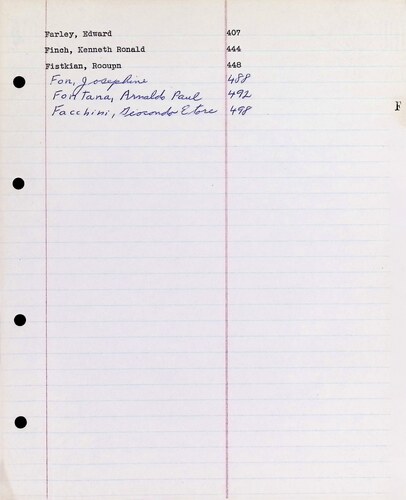 Farley, Edward 407
Finch, Kenneth Ronald 444
Fistkian, Rooupn 448
Fon, Josephine 488
Fontana, Arnaldo Paul 492
Facchini, Giocondo Etore 498
F